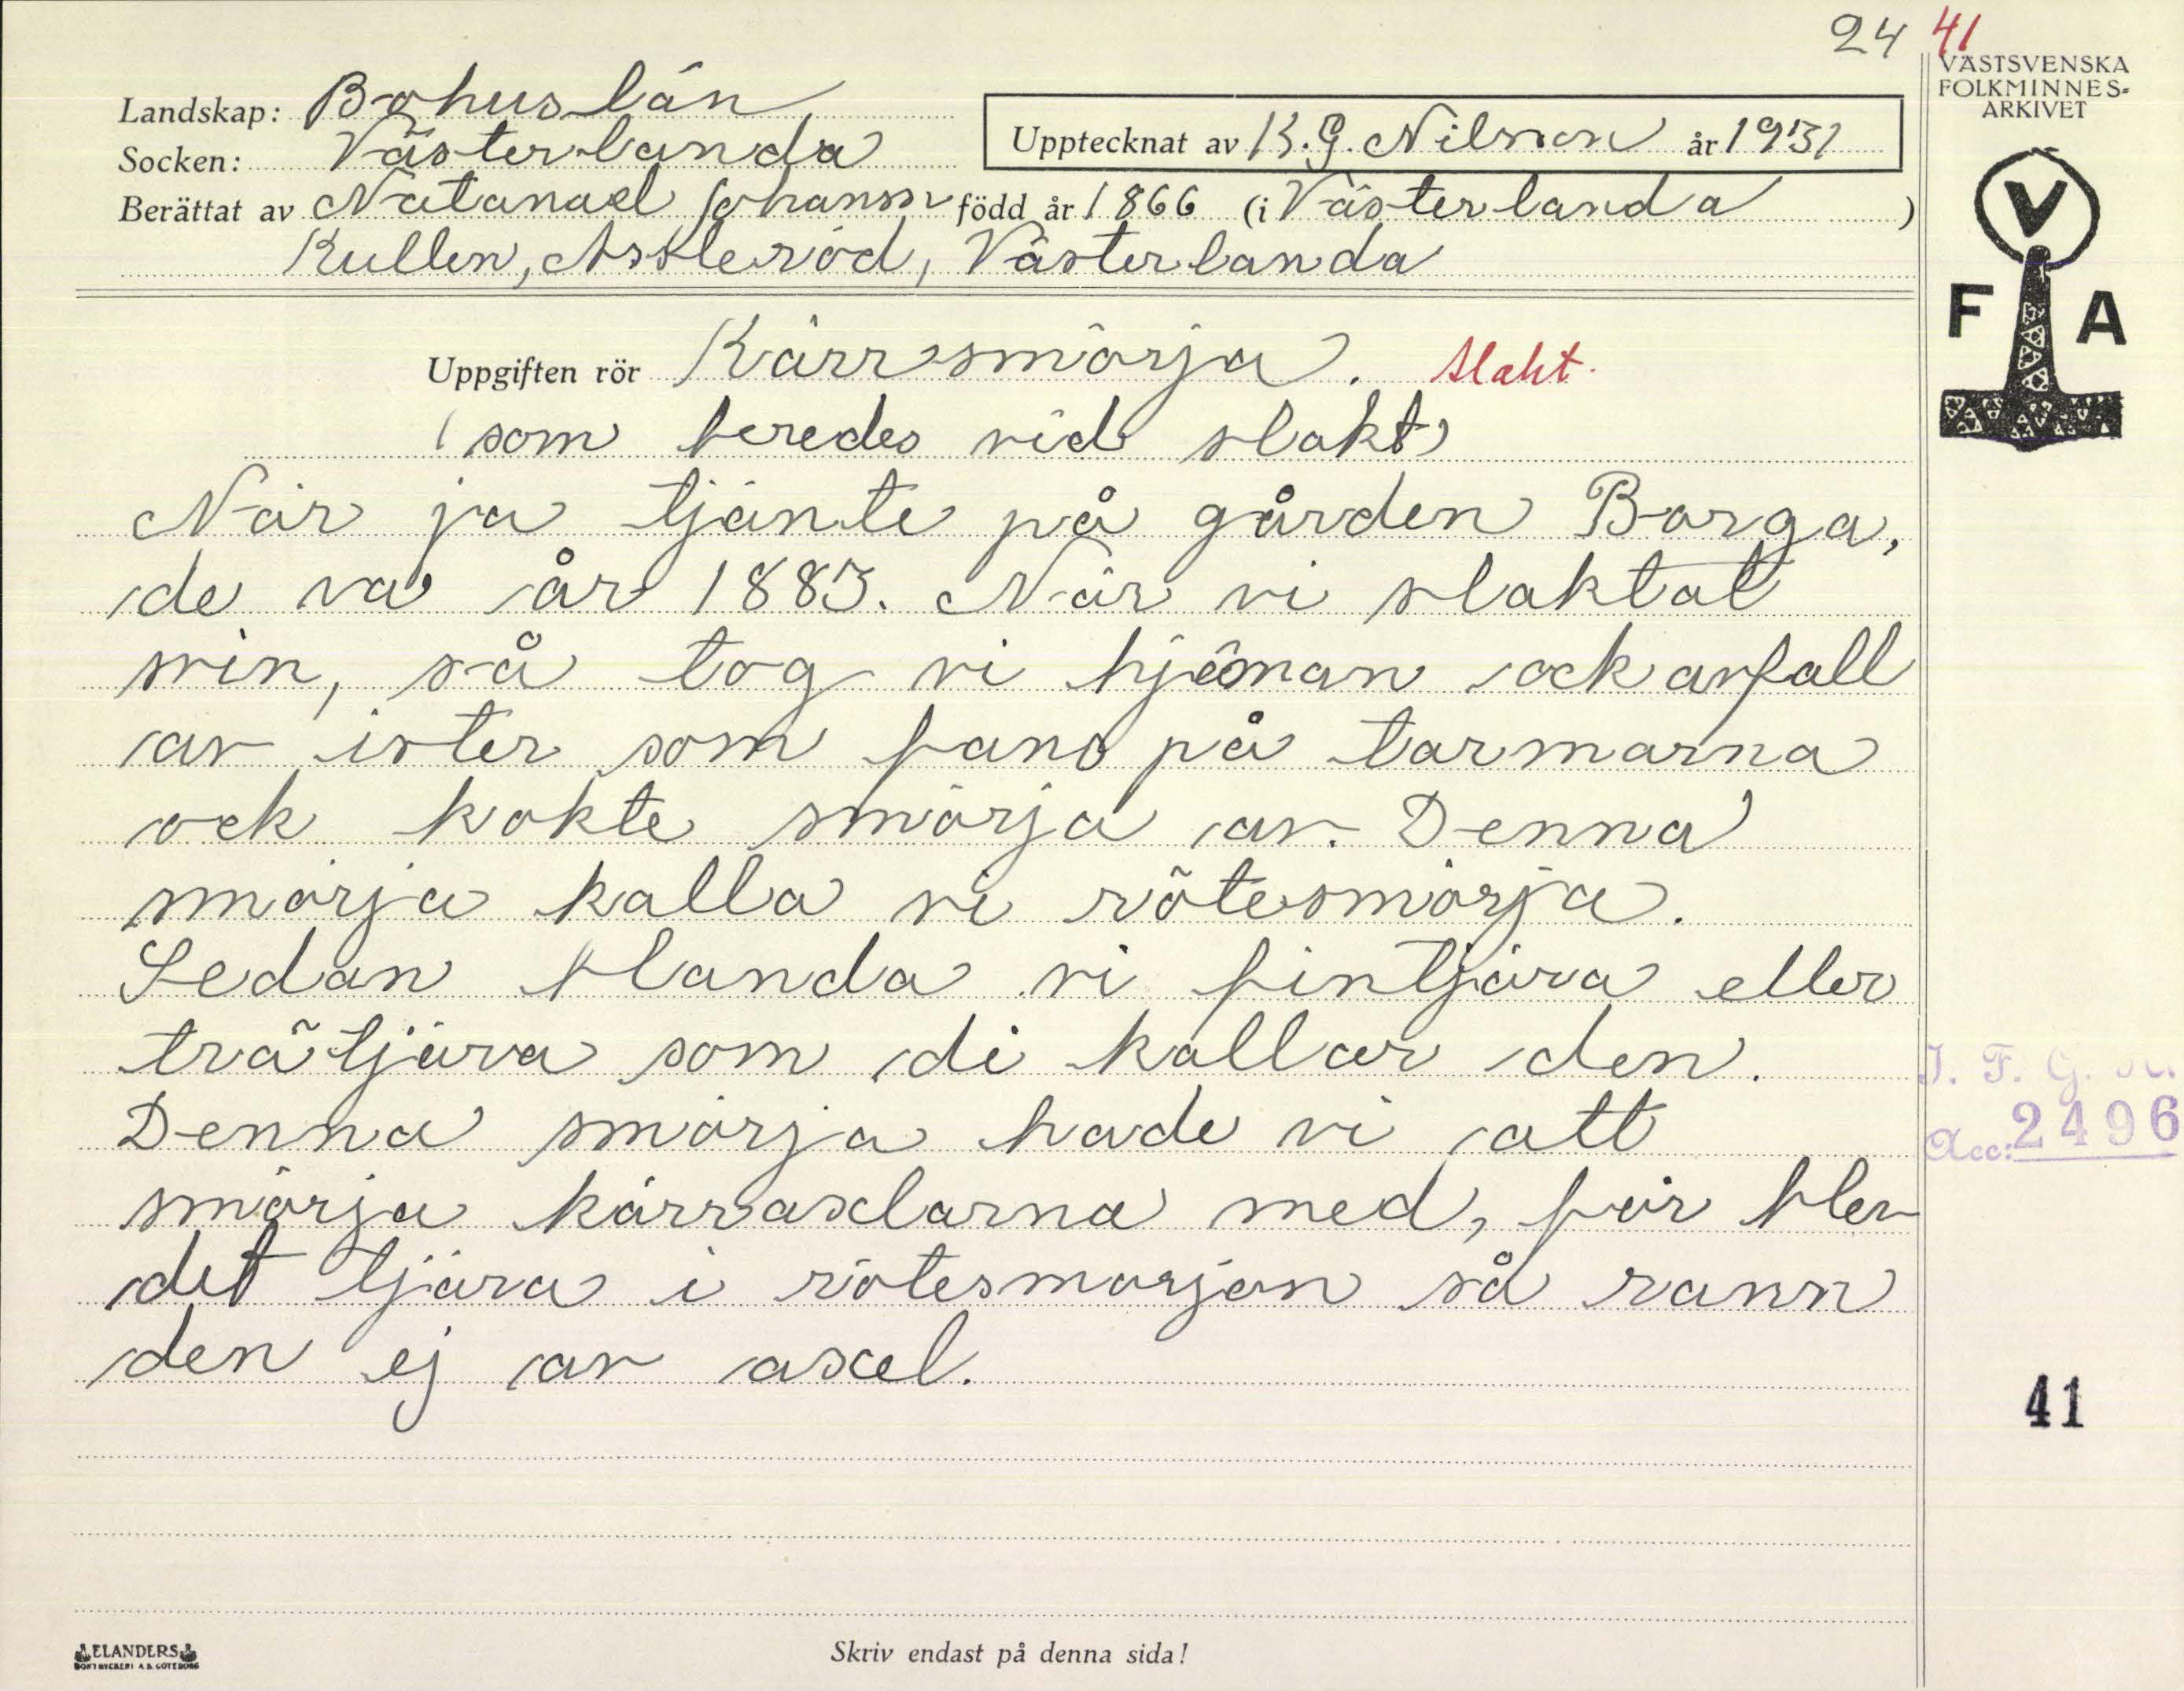 24 41
VÄSTSVENSKA
FOLKMINNES-
ARKIVET
Landskap: Bohuslän
Socken: Västerlanda
Upptecknat av K. G. Nilsson år 1931
Berättat av Natanael Johansson född år 1866 (i Västerlanda)
Kullen, Askleröd, Västerlanda
V
F A
Uppgiften rör Kärrsmörja. slakt.
(som beredes vid slakt)
När ja tjänte på gården Borga,
de va år 1883. När vi slaktat
svin, så tog vi hjöman ock avfall
av ister som fans på tarmarna
ock kokte smörja av. Denna
smörja kalla vi rötesmörja.
Sedan blanda vi fintjära eller
trätjära som di kallar den.
Denna smörja hade vi att
smörja kärraxlarna med, för blev
det tjära i rötesmörjan så rann
den ej av axel.
I. F. G. H.
Acc: 2496
41
ELANDERS
BOKTRYCKERI A.B. GÖTEBORG
Skriv endast på denna sida!